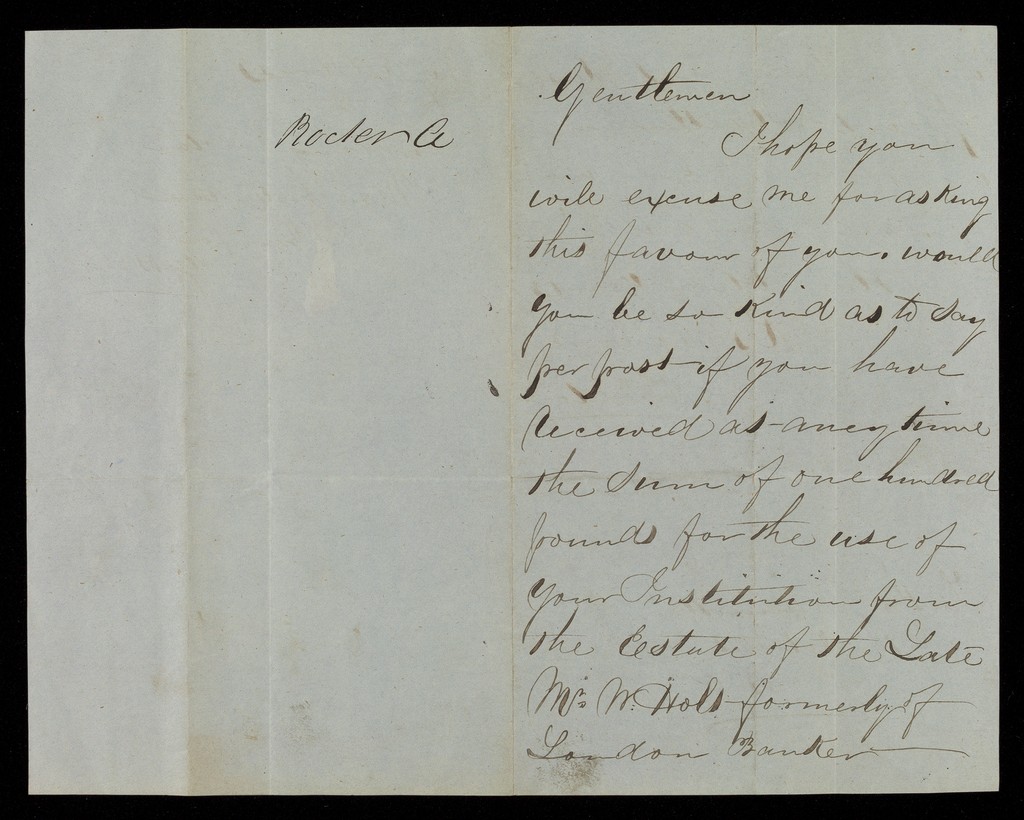 Gentlemen
I hope you
will excuse me for asking
this favour of you. would
you be so kind as to say
per post if you have
received at aney time
the sum of one hundred
pounds for the use of
your Institution from
the Estate of the Late
Mr W. Holt formerly of
London Banker